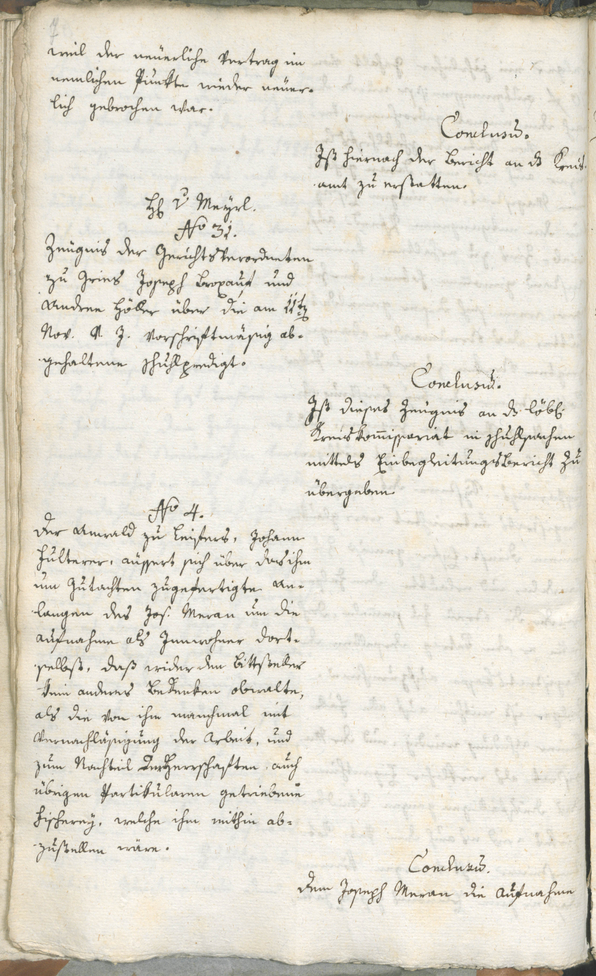 weil der neüerliche Vertrag im
nemlichen Punkte wieder neüer-
lich gebrochen war.
Conclusũ.
Ist hiernach der Bericht an ds Kreis-
amt zu erstatten.
Hh. v Meyrl.
No 3.
Zeügnis der Gerichtsverordneten
zu Gries Joseph und
Andree Höller über die am 11tn
Nov. d. J. vorschriftmäsig ab-
gehaltene Schuhlpredigt.
Conclusũ.
Ist dieses Zeügnis an ds löbl.
Kreiskom̃issariat in Schuhlsachen
mittels Einbegleitungsbericht zu
übergeben.
No 4.
Der Anwald zu Leifers, Johann
Hulterer, aüssert sich über das ihm
um Gutachten zugefertigte An-
langen des Jos. Meran um die
Aufnahme als Innwohner dort-
selbst, daß wider den Bittsteller
kein anderes Bedenken obwalte,
als die von ihm manchmal mit
Vernachläsigung der Arbeit, und
zum Nachteil der Herrschaften auch
übrigen Partikularen getriebene
Fischerey, welche ihm mithin ab-
zustellen wäre.
Conclusũ.
Dem Joseph Meran die Aufnahme